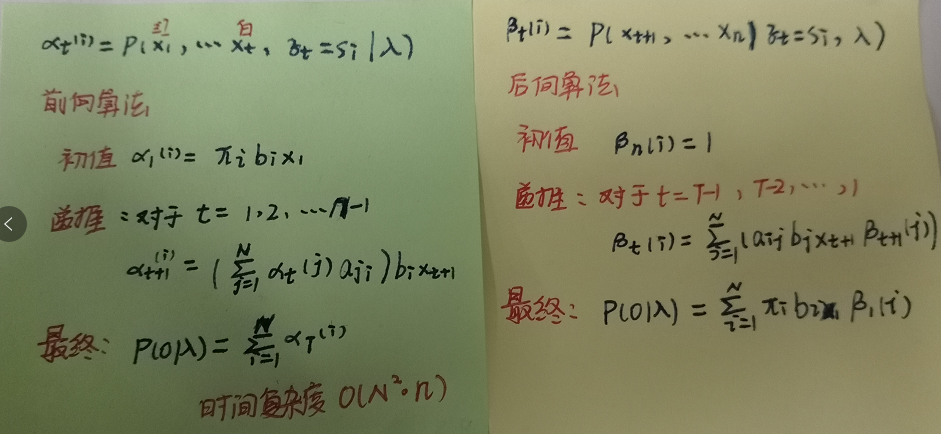 红 白
αt(i) = P(x1, ... xt, zt = si | λ)
前向算法
初值 α1(i) = πi bi x1
递推: 对于 t = 1, 2, ... n-1
αt+1(i) = ( Σ j=1 N αt(j) aji ) bi xt+1
最终: P(O|λ) = Σ i=1 N αT(i)
时间复杂度 O(N²·n)
βt(i) = P( xt+1, ... xn | zt = si, λ)
后向算法
初值 βn(i) = 1
递推: 对于 t = T-1, T-2, ..., 1
βt(i) = Σ j=1 N (aij bj xt+1 βt+1(j))
最终: P(O|λ) = Σ i=1 N πi bi x1 β1(i)